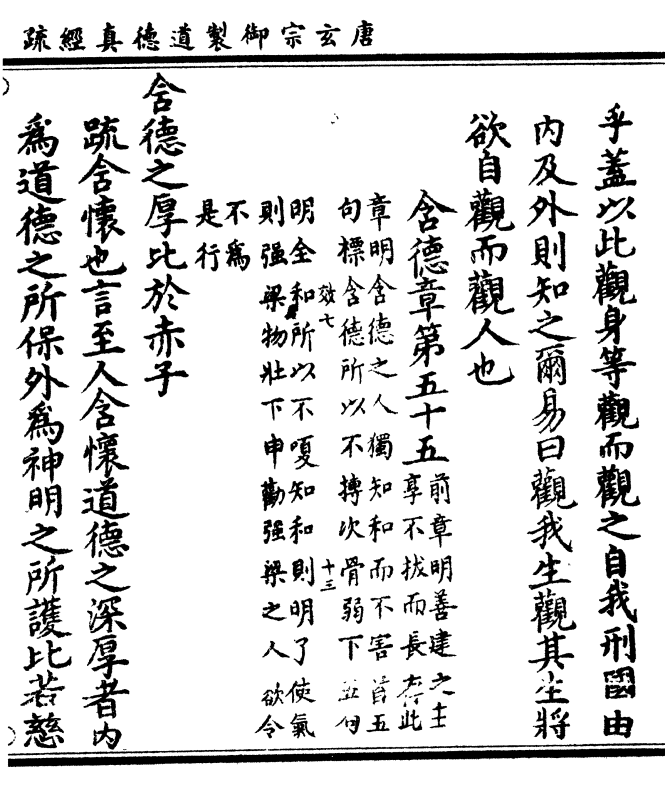 唐玄宗御製道德真經疏
乎蓋以此觀身等觀而觀之自我刑國由
內及外則知之爾易曰觀我生觀其生將
欲自觀而觀人也
含德章第五十五
前章明善建之士
享不拔而長存此
章明含德之人獨知和而不害首五
句標含德所以不搏次骨弱下五句
效七
十三
明全和所以不嗄知和則明了使氣
則强梁物壯下申勸强梁之人欲令
不為
是行
含德之厚比於赤子
疏含懷也言至人含懷道德之深厚者內
為道德之所保外為神明之所護比若慈